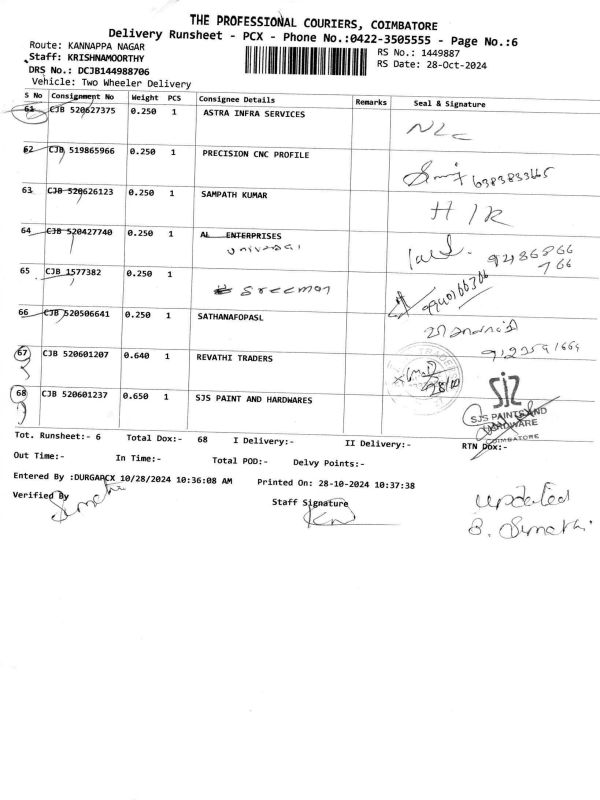 THE PROFESSIONAL COURIERS, COIMBATORE
Delivery Runsheet - PCX - Phone No.:0422-3505555 - Page No.:6
Route: KANNAPPA NAGAR
RS No.: 1449887
Staff: KRISHNAMOORTHY
RS Date: 28-Oct-2024
DRS No.: DCJB144988706
Vehicle: Two Wheeler Delivery
S No Consignment No Weight PCS Consignee Details Remarks Seal & Signature
61 CJB 520627375 0.250 1 ASTRA INFRA SERVICES
NLC
62 CJB 519865966 0.250 1 PRECISION CNC PROFILE
63 CJB 520626123 0.250 1 SAMPATH KUMAR
H/R
64 CJB 520427740 0.250 1 AL ENTERPRISES
Universal
65 CJB 1577382 0.250 1 Sreemon
66 CJB 520506641 0.250 1 SATHANAFOPASL
67 CJB 520601207 0.640 1 REVATHI TRADERS
28/10
68 CJB 520601237 0.650 1 SJS PAINT AND HARDWARES
SJS
SJS PAINTS AND
HARDWARE
COIMBATORE
Tot. Runsheet:- 6 Total Dox:- 68 I Delivery:- II Delivery:- RTN Dox:-
Out Time:- In Time:- Total POD:- Delvy Points:-
Entered By :DURGAPCX 10/28/2024 10:36:08 AM Printed On: 28-10-2024 10:37:38
Verified By
Staff Signature
updated
B. Sumathi.